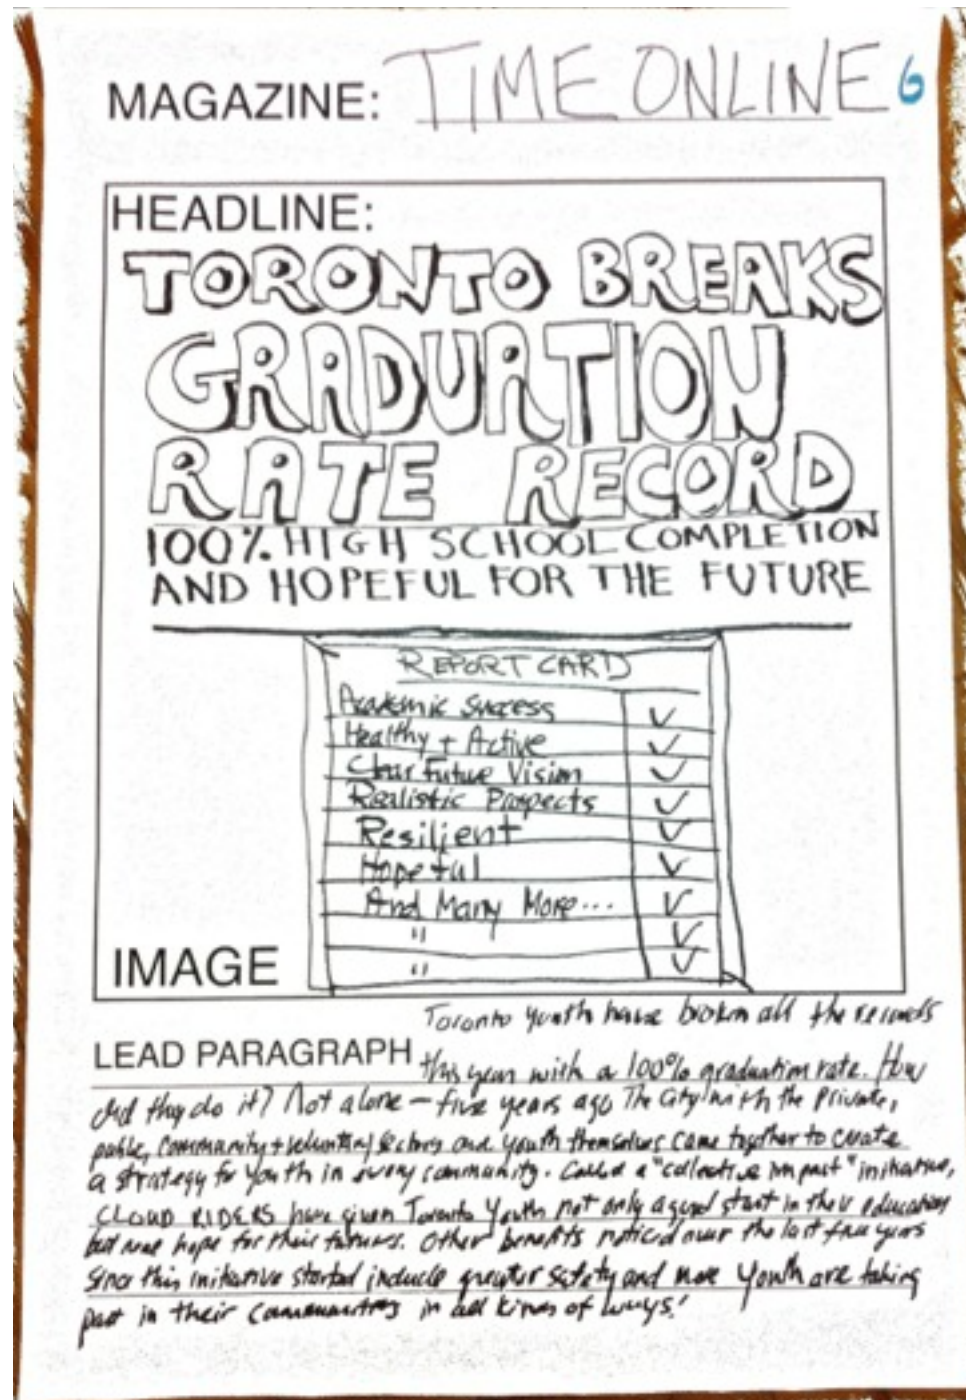 MAGAZINE: TIME ONLINE 6
HEADLINE:
TORONTO BREAKS
GRADUATION
RATE RECORD
100% HIGH SCHOOL COMPLETION
AND HOPEFUL FOR THE FUTURE
REPORT CARD
Academic Success
Healthy + Active
Clear Future Vision
Realistic Prospects
Resilient
Hopeful
And Many More...
"
"
IMAGE
Toronto youth have broken all the records
LEAD PARAGRAPH this year with a 100% graduation rate. How
did they do it? Not alone – five years ago The City with the private,
public, community + voluntary sectors and youth themselves came together to create
a strategy for youth in every community. Called a "collective impact" initiative,
CLOUD RIDERS have given Toronto Youth not only a good start in their education
but more hope for their futures. Other benefits noticed over the last five years
since this initiative started include greater safety and more youth are taking
part in their communities in all kinds of ways!